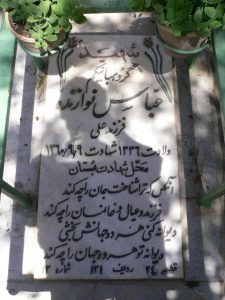 شهید
گروهبانیکم
عباس نوازنده
فرزند علی
ولادت ۱۳۳۶ شهادت ۱۳۶۰/۹/۹
محل شهادت بستان
آنکس که تراشناخت جان را چه کند
فرزند و عیال و خانمان را چه کند
دیوانه کنی هر دو جهانش بخشی
دیوانه تو هر دو جهان را چه کند
قطعه ۲۴ ردیف ۱۲۱ شماره ۳